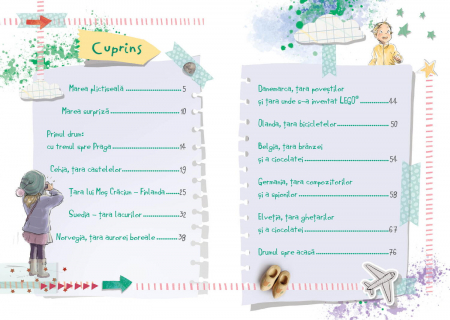 Cuprins
Marea plictiseală 5
Marea surpriză 10
Primul drum:
cu trenul spre Praga 14
Cehia, țara castelelor 19
Țara lui Moș Crăciun - Finlanda 25
Suedia - țara lacurilor 32
Norvegia, țara aurorei boreale 38
Danemarca, țara poveștilor
și țara unde s-a inventat LEGO® 44
Olanda, țara bicicletelor 50
Belgia, țara brânzei
și a ciocolatei 54
Germania, țara compozitorilor
și a pâinilor 58
Elveția, țara ghețarilor
și a ciocolatei 67
Drumul spre acasă 76